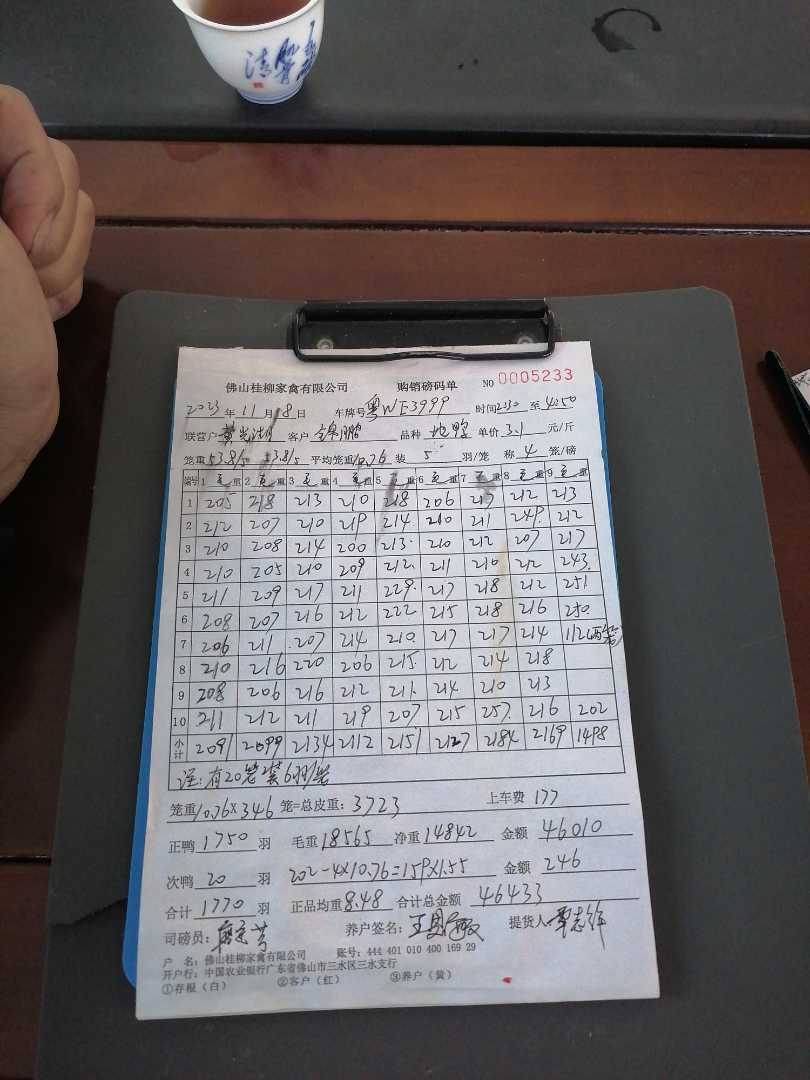 清
佛山桂柳家禽有限公司 购销磅码单 NO 0005233
2023年11月18日 车牌号 粤WE3999 时间 2:30 至 4:50
联营户 客户 品种 地鸭 单价 3.1 元/斤
笼重 53.8/5 53.8/5 平均笼重 10.76 装 5 羽/笼 称 4 笼/磅
编号 1 毛重 2 毛重 3 毛重 4 毛重 5 毛重 6 毛重 7 毛重 8 毛重 9 毛重
1 205 218 213 210 218 206 217 212 213
2 212 207 210 219 214 210 211 249 212
3 210 208 214 200 213 210 212 207 217
4 210 205 210 209 212 211 210 212 243
5 211 209 217 211 229 217 218 212 251
6 208 207 216 212 222 215 218 216 250
7 206 211 207 214 210 217 217 214 112(两笼)
8 210 216 220 206 215 212 214 218
9 208 206 216 212 211 214 210 213
10 211 212 211 219 207 215 257 216 202
小计 2091 2099 2134 2112 2151 2127 2184 2169 1498
注:有20笼装6羽/笼
笼重 10.76×346 笼=总皮重: 3723 上车费 177
正鸭 1750 羽 毛重 18565 净重 14842 金额 46010
次鸭 20 羽 202-4×10.76=159×1.55 金额 246
合计 1770 羽 正品均重 8.48 合计总金额 46433
司磅员: 养户签名: 提货人
户 名: 佛山桂柳家禽有限公司 账号: 444 401 010 400 169 29
开户行: 中国农业银行广东省佛山市三水区三水支行
①存根(白) ②客户(红) ③养户(黄)